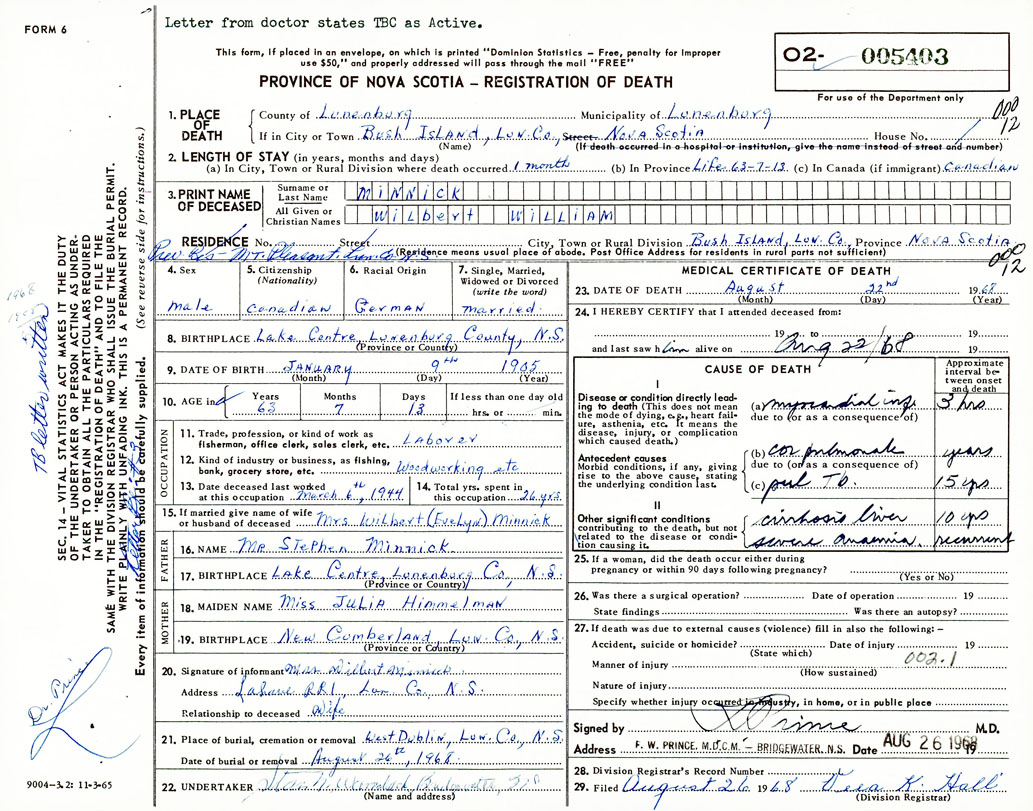 FORM 6
Letter from doctor states TBC as Active.
This form, if placed in an envelope, on which is printed "Dominion Statistics – Free, penalty for improper
use $50," and properly addressed will pass through the mail "FREE"
PROVINCE OF NOVA SCOTIA – REGISTRATION OF DEATH
02- 005403
For use of the Department only
000
12
1. PLACE OF DEATH
County of Lunenburg Municipality of Lunenburg
If in City or Town Bush Island, Lun. Co., Street Nova Scotia House No.
(Name) (If death occurred in a hospital or institution, give the name instead of street and number)
2. LENGTH OF STAY (in years, months and days)
(a) In City, Town or Rural Division where death occurred 1 month (b) In Province Life 63-7-13 (c) In Canada (if immigrant) Canadian
3. PRINT NAME OF DECEASED
Surname or Last Name MINNICK
All Given or Christian Names Wilbert WILLIAM
RESIDENCE No. Street City, Town or Rural Division Bush Island, Lun. Co., Province Nova Scotia
Prev Res - Mt. Pleasant, Lun. Co. N.S. (Residence means usual place of abode. Post Office Address for residents in rural parts not sufficient)
000
12
4. Sex
male
5. Citizenship (Nationality)
Canadian
6. Racial Origin
German
7. Single, Married, Widowed or Divorced (write the word)
married.
8. BIRTHPLACE Lake Centre, Lunenburg County, N.S.
(Province or County)
9. DATE OF BIRTH January 9th 1905
(Month) (Day) (Year)
10. AGE in Years Months Days If less than one day old
63 7 13 hrs. or min.
OCCUPATION
11. Trade, profession, or kind of work as fisherman, office clerk, sales clerk, etc. Laborer
12. Kind of industry or business, as fishing, bank, grocery store, etc. Woodworking etc
13. Date deceased last worked at this occupation March 6th, 1944
14. Total yrs. spent in this occupation 26 yrs.
15. If married give name of wife or husband of deceased Mrs Wilbert (Evelyn) Minnick
FATHER
16. NAME Mr Stephen Minnick
17. BIRTHPLACE Lake Centre, Lunenburg Co, N.S.
(Province or County)
MOTHER
18. MAIDEN NAME Miss Julia Himmelman
19. BIRTHPLACE New Cumberland, Lun. Co, N.S.
(Province or County)
20. Signature of informant Mrs Wilbert Minnick
Address Lahave RR1, Lun. Co, N.S.
Relationship to deceased Wife
21. Place of burial, cremation or removal West Dublin, Lun. Co, N.S.
Date of burial or removal August 26th, 1968
22. UNDERTAKER
(Name and address)
MEDICAL CERTIFICATE OF DEATH
23. DATE OF DEATH August 22nd 1968
(Month) (Day) (Year)
24. I HEREBY CERTIFY that I attended deceased from:
19 to 19
and last saw him alive on Aug 22/68 19
CAUSE OF DEATH
Approximate interval between onset and death
I
Disease or condition directly leading to death (This does not mean the mode of dying, e.g., heart failure, asthenia, etc. It means the disease, injury, or complication which caused death.)
(a) myocardial inf. 3 hrs
due to (or as a consequence of)
Antecedent causes
Morbid conditions, if any, giving rise to the above cause, stating the underlying condition last.
(b) cor pulmonale years
due to (or as a consequence of)
(c) pul Tb. 15 yrs
II
Other significant conditions contributing to the death, but not related to the disease or condition causing it.
cirrhosis liver 10 yrs
severe anaemia. recurrent
25. If a woman, did the death occur either during pregnancy or within 90 days following pregnancy?
(Yes or No)
26. Was there a surgical operation? Date of operation 19
State findings Was there an autopsy?
27. If death was due to external causes (violence) fill in also the following: –
Accident, suicide or homicide? Date of injury 19
(State which) 002.1
Manner of injury
(How sustained)
Nature of injury
Specify whether injury occurred in industry, in home, or in public place
Signed by Prince M.D.
Address F. W. PRINCE, M.D.C.M. – BRIDGEWATER, N.S. Date AUG 26 1968
28. Division Registrar's Record Number
29. Filed August 26 1968 Vera K. Hall
(Division Registrar)
SEC. 14 – VITAL STATISTICS ACT MAKES IT THE DUTY
OF THE UNDERTAKER OR PERSON ACTING AS UNDER-
TAKER TO OBTAIN ALL THE PARTICULARS REQUIRED
IN THE "REGISTRATION OF DEATH" AND TO FILE THE
SAME WITH THE DIVISION REGISTRAR WHO SHALL ISSUE THE BURIAL PERMIT.
WRITE PLAINLY WITH UNFADING INK. THIS IS A PERMANENT RECORD.
Every item of information should be carefully supplied. (See reverse side for instructions.)
1968
TB letter written
Dr. Prince
9004-3.2: 11-3-65